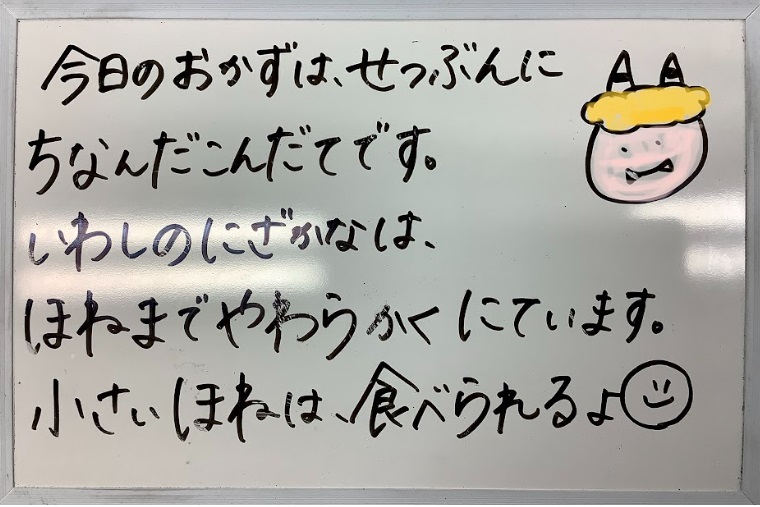 今日のおかずは、せつぶんに
ちなんだこんだてです。
いわしのにざかなは、
ほねまでやわらかくにています。
小さいほねは、食べられるよ